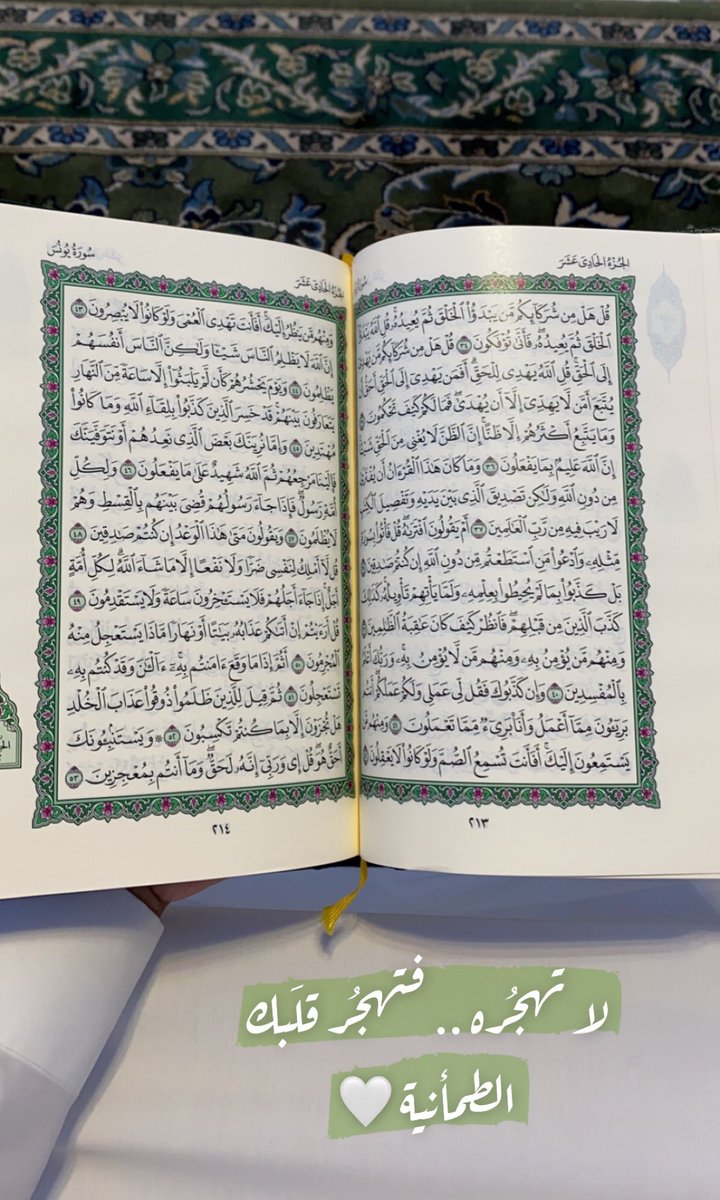 الجُزْءُ الحَادِى عَشَرَ
قُلْ هَلْ مِن شُرَكَآئِكُم مَّن يَبْدَؤُاْ ٱلْخَلْقَ ثُمَّ يُعِيدُهُۥۚ قُلِ ٱللَّهُ
ٱلْخَلْقَ ثُمَّ يُعِيدُهُۥۖ فَأَنَّىٰ تُؤْفَكُونَ ٣٤ قُلْ هَلْ مِن شُرَكَآئِكُم مَّن يَهْدِىٓ
إِلَى ٱلْحَقِّۚ قُلِ ٱللَّهُ يَهْدِى لِلْحَقِّۗ أَفَمَن يَهْدِىٓ إِلَى ٱلْحَقِّ أَحَقُّ
يُتَّبَعَ أَمَّن لَّا يَهِدِّىٓ إِلَّآ أَن يُهْدَىٰۖ فَمَا لَكُمْ كَيْفَ تَحْكُمُونَ
وَمَا يَتَّبِعُ أَكْثَرُهُمْ إِلَّا ظَنًّاۚ إِنَّ ٱلظَّنَّ لَا يُغْنِى مِنَ ٱلْحَقِّ
إِنَّ ٱللَّهَ عَلِيمٌۢ بِمَا يَفْعَلُونَ ٣٦ وَمَا كَانَ هَٰذَا ٱلْقُرْءَانُ أَن يُفْتَرَىٰ
مِن دُونِ ٱللَّهِ وَلَٰكِن تَصْدِيقَ ٱلَّذِى بَيْنَ يَدَيْهِ وَتَفْصِيلَ
لَا رَيْبَ فِيهِ مِن رَّبِّ ٱلْعَٰلَمِينَ ٣٧ أَمْ يَقُولُونَ ٱفْتَرَىٰهُۖ قُلْ فَأْتُواْ
مِّثْلِهِۦ وَٱدْعُواْ مَنِ ٱسْتَطَعْتُم مِّن دُونِ ٱللَّهِ إِن كُنتُمْ صَٰدِقِينَ
بَلْ كَذَّبُواْ بِمَا لَمْ يُحِيطُواْ بِعِلْمِهِۦ وَلَمَّا يَأْتِهِمْ تَأْوِيلُهُۥۚ كَذَٰلِكَ
كَذَّبَ ٱلَّذِينَ مِن قَبْلِهِمْۖ فَٱنظُرْ كَيْفَ كَانَ عَٰقِبَةُ ٱلظَّٰلِمِينَ
وَمِنْهُم مَّن يُؤْمِنُ بِهِۦ وَمِنْهُم مَّن لَّا يُؤْمِنُ بِهِۦۚ وَرَبُّكَ
بِٱلْمُفْسِدِينَ ٤٠ وَإِن كَذَّبُوكَ فَقُل لِّى عَمَلِى وَلَكُمْ عَمَلُكُمْۖ أَنتُم
بَرِيٓـُٔونَ مِمَّآ أَعْمَلُ وَأَنَا۠ بَرِىٓءٌ مِّمَّا تَعْمَلُونَ ٤١ وَمِنْهُم
يَسْتَمِعُونَ إِلَيْكَۚ أَفَأَنتَ تُسْمِعُ ٱلصُّمَّ وَلَوْ كَانُواْ لَا يَعْقِلُونَ
٢١٣
الجُزْءُ الحَادِى عَشَرَ
سُورَةُ يُونُسَ
وَمِنْهُم مَّن يَنظُرُ إِلَيْكَۚ أَفَأَنتَ تَهْدِى ٱلْعُمْىَ وَلَوْ كَانُواْ لَا يُبْصِرُونَ ٤٣
إِنَّ ٱللَّهَ لَا يَظْلِمُ ٱلنَّاسَ شَيْـًٔا وَلَٰكِنَّ ٱلنَّاسَ أَنفُسَهُمْ
يَظْلِمُونَ ٤٤ وَيَوْمَ يَحْشُرُهُمْ كَأَن لَّمْ يَلْبَثُوٓاْ إِلَّا سَاعَةً مِّنَ ٱلنَّهَارِ
يَتَعَارَفُونَ بَيْنَهُمْۚ قَدْ خَسِرَ ٱلَّذِينَ كَذَّبُواْ بِلِقَآءِ ٱللَّهِ وَمَا كَانُواْ
مُهْتَدِينَ ٤٥ وَإِمَّا نُرِيَنَّكَ بَعْضَ ٱلَّذِى نَعِدُهُمْ أَوْ نَتَوَفَّيَنَّكَ
فَإِلَيْنَا مَرْجِعُهُمْ ثُمَّ ٱللَّهُ شَهِيدٌ عَلَىٰ مَا يَفْعَلُونَ ٤٦ وَلِكُلِّ
أُمَّةٍ رَّسُولٌۖ فَإِذَا جَآءَ رَسُولُهُمْ قُضِىَ بَيْنَهُم بِٱلْقِسْطِ وَهُمْ
لَا يُظْلَمُونَ ٤٧ وَيَقُولُونَ مَتَىٰ هَٰذَا ٱلْوَعْدُ إِن كُنتُمْ صَٰدِقِينَ ٤٨
قُل لَّآ أَمْلِكُ لِنَفْسِى ضَرًّا وَلَا نَفْعًا إِلَّا مَا شَآءَ ٱللَّهُۗ لِكُلِّ أُمَّةٍ
أَجَلٌۚ إِذَا جَآءَ أَجَلُهُمْ فَلَا يَسْتَـْٔخِرُونَ سَاعَةً وَلَا يَسْتَقْدِمُونَ ٤٩
قُلْ أَرَءَيْتُمْ إِنْ أَتَىٰكُمْ عَذَابُهُۥ بَيَٰتًا أَوْ نَهَارًا مَّاذَا يَسْتَعْجِلُ مِنْهُ
ٱلْمُجْرِمُونَ ٥٠ أَثُمَّ إِذَا مَا وَقَعَ ءَامَنتُم بِهِۦٓۚ ءَآلْـَٰٔنَ وَقَدْ كُنتُم بِهِۦ
تَسْتَعْجِلُونَ ٥١ ثُمَّ قِيلَ لِلَّذِينَ ظَلَمُواْ ذُوقُواْ عَذَابَ ٱلْخُلْدِ
هَلْ تُجْزَوْنَ إِلَّا بِمَا كُنتُمْ تَكْسِبُونَ ٥٢ ۞ وَيَسْتَنۢبِـُٔونَكَ
أَحَقٌّ هُوَۖ قُلْ إِى وَرَبِّىٓ إِنَّهُۥ لَحَقٌّۖ وَمَآ أَنتُم بِمُعْجِزِينَ ٥٣
٢١٤
لا تهجُره .. فتهجُر قلَبك
الطمأنية 🤍